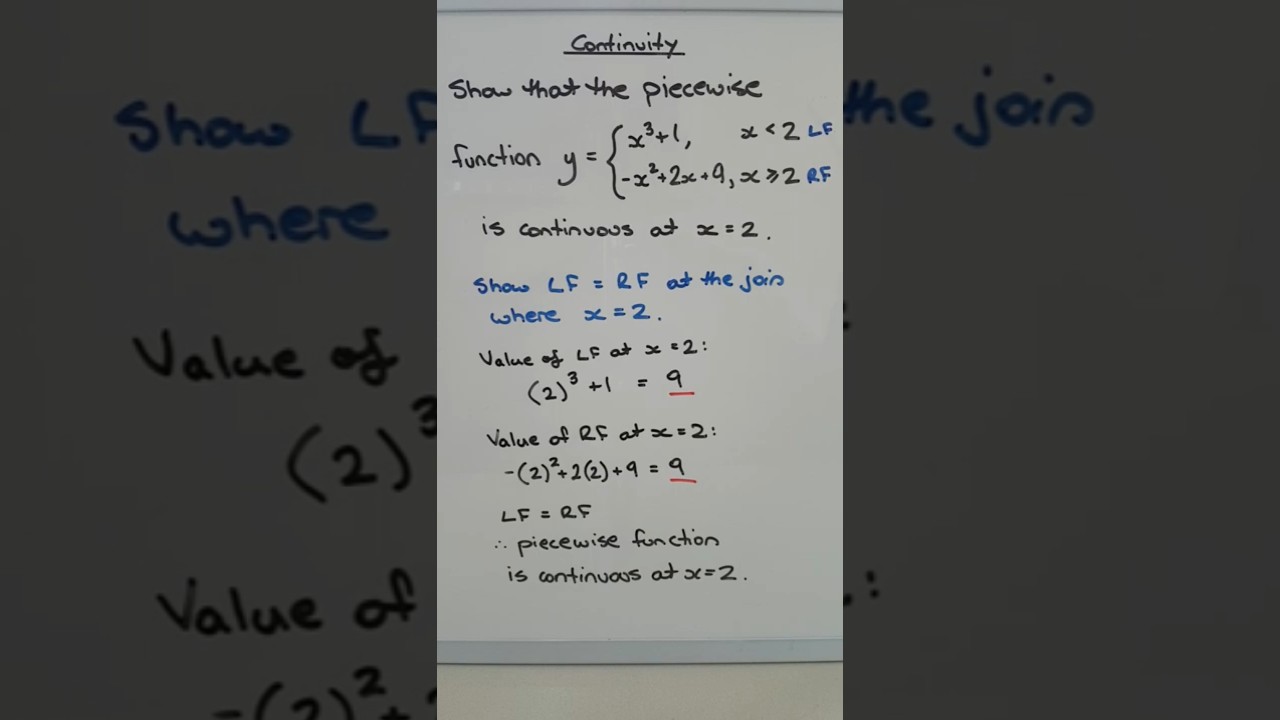 Continuity
Show that the piecewise
function y = { x³+1, x < 2 LF
-x²+2x+9, x ⩾ 2 RF
is continuous at x = 2.
Show LF = RF at the join
where x = 2.
Value of LF at x = 2:
(2)³ + 1 = 9
Value of RF at x = 2:
-(2)² + 2(2) + 9 = 9
LF = RF
∴ piecewise function
is continuous at x = 2.